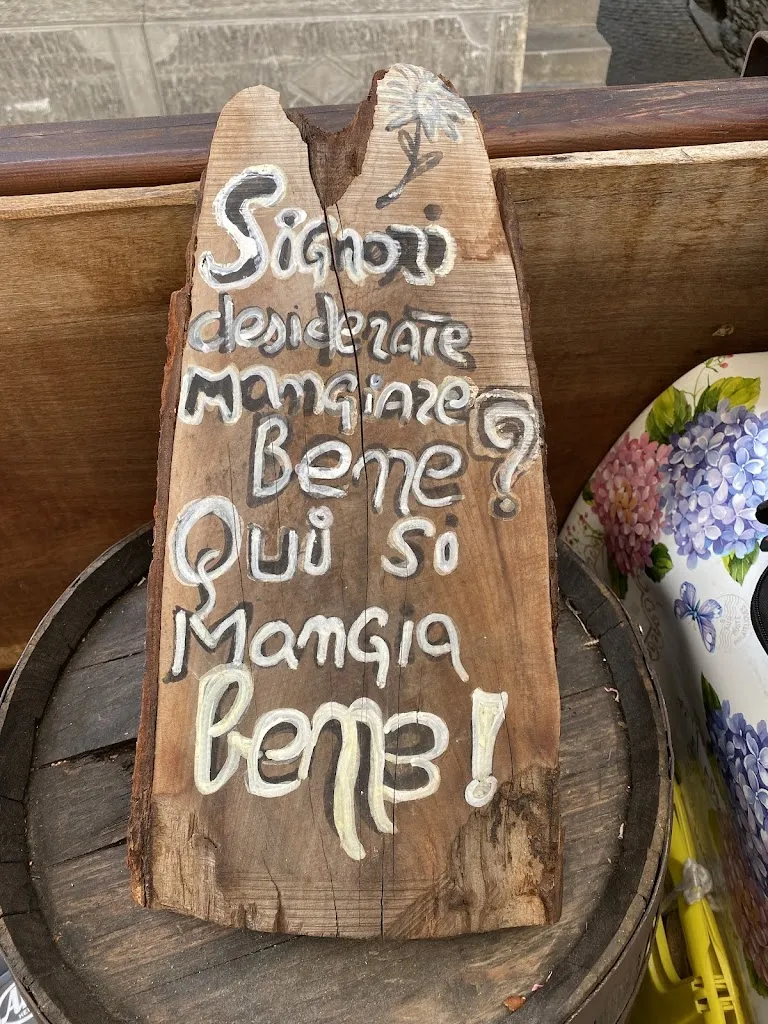 Signori
desiderate
mangiare
Bene?
Qui si
Mangia
bene!